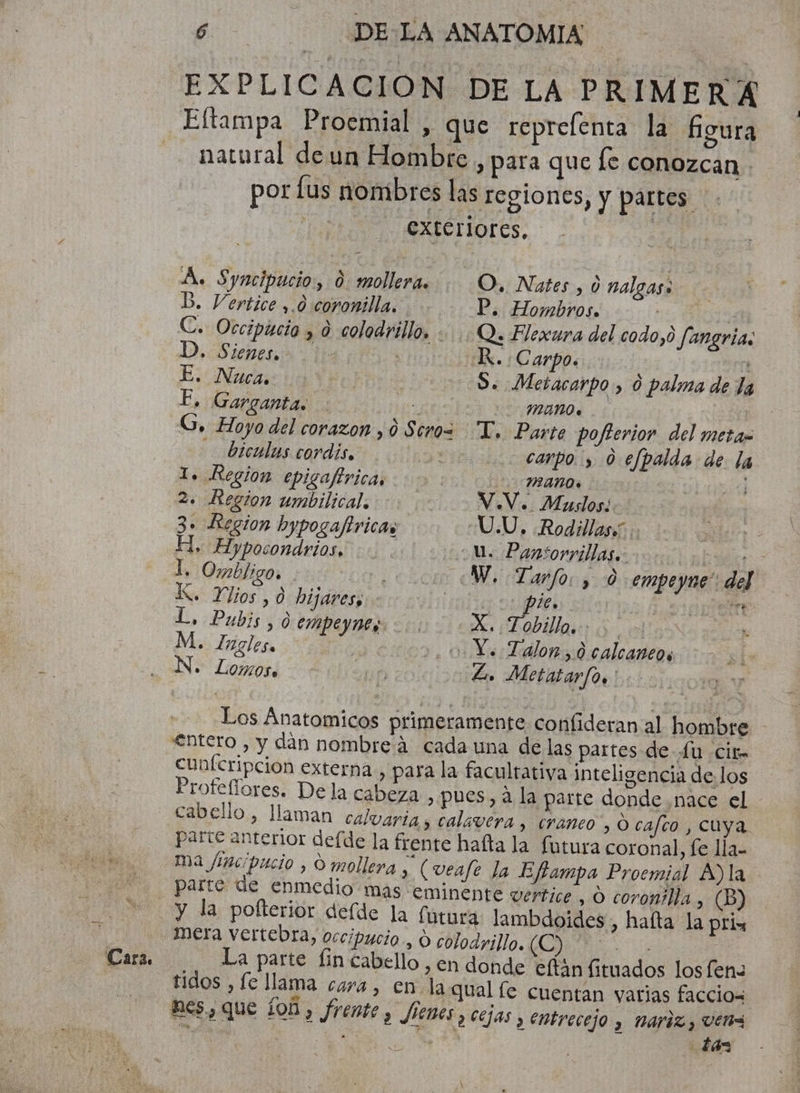 6 DE LA ANATOMIA
EXPLICACION DE LA PRIMERA
Eſtampa Proemial , que repreſenta la figura
natural de un Hombre , para que ſe conozcan
por ſus nombres las regiones, y partes
exteriores.
A. Syncipucio, ò mollera.
B. Vertice , ò coronilla.
C. Occipucio , ò colodrillo.
D. Sienes.
E. Nuca.
F. Garganta.
G. Hoyo del corazon , ò Scro-
biculus cordis.
1. Region epigaſtrica.
2. Region umbilical.
3. Region hypogaſtrica.
H. Hypocondrios.
I. Ombligo.
K. Ylios , ò hijares.
L. Pubis , ò empeyne.
M. Ingles.
N. Lomos.
O. Nates , ò nalgas.
P. Hombros.
Q. Flexura del codo, ò ſangria.
R. Carpo.
S. Metacarpo , ò palma de la
mano.
T. Parte poſterior del meta-
carpo , ò eſpalda de la
mano.
V.V. Muslos.
U.U. Rodillas.
u. Pantorrillas.
W. Tarſo , ò empeyne del
pie.
X. Tobillo.
Y. Talon , ò calcaneo.
Z. Metatarſo.
Los Anatomicos primeramente conſideran al hombre
entero , y dàn nombre à cada una de las partes de ſu cir-
cunſcripcion externa , para la facultativa inteligencia de los
Profeſſores. De la cabeza , pues, à la parte donde nace el
cabello , llaman calvaria , calavera , craneo , ò caſco , cuya
parte anterior deſde la frente haſta la ſutura coronal, ſe lla-
ma ſincipucio , ò mollera , (veaſe la Eſtampa Proemial A) la
parte de enmedio mas eminente vertice , ò coronilla , (B)
y la poſterior deſde la ſutura lambdoides , haſta la pri-
mera vertebra, occipucio , ò colodrillo. (C)
Cara. La parte ſin cabello , en donde eſtàn ſituados los ſen-
tidos , ſe llama cara , en la qual ſe cuentan varias faccio-
nes , que ſon , frente , ſienes , cejas , entrecejo , nariz , ven-
tas